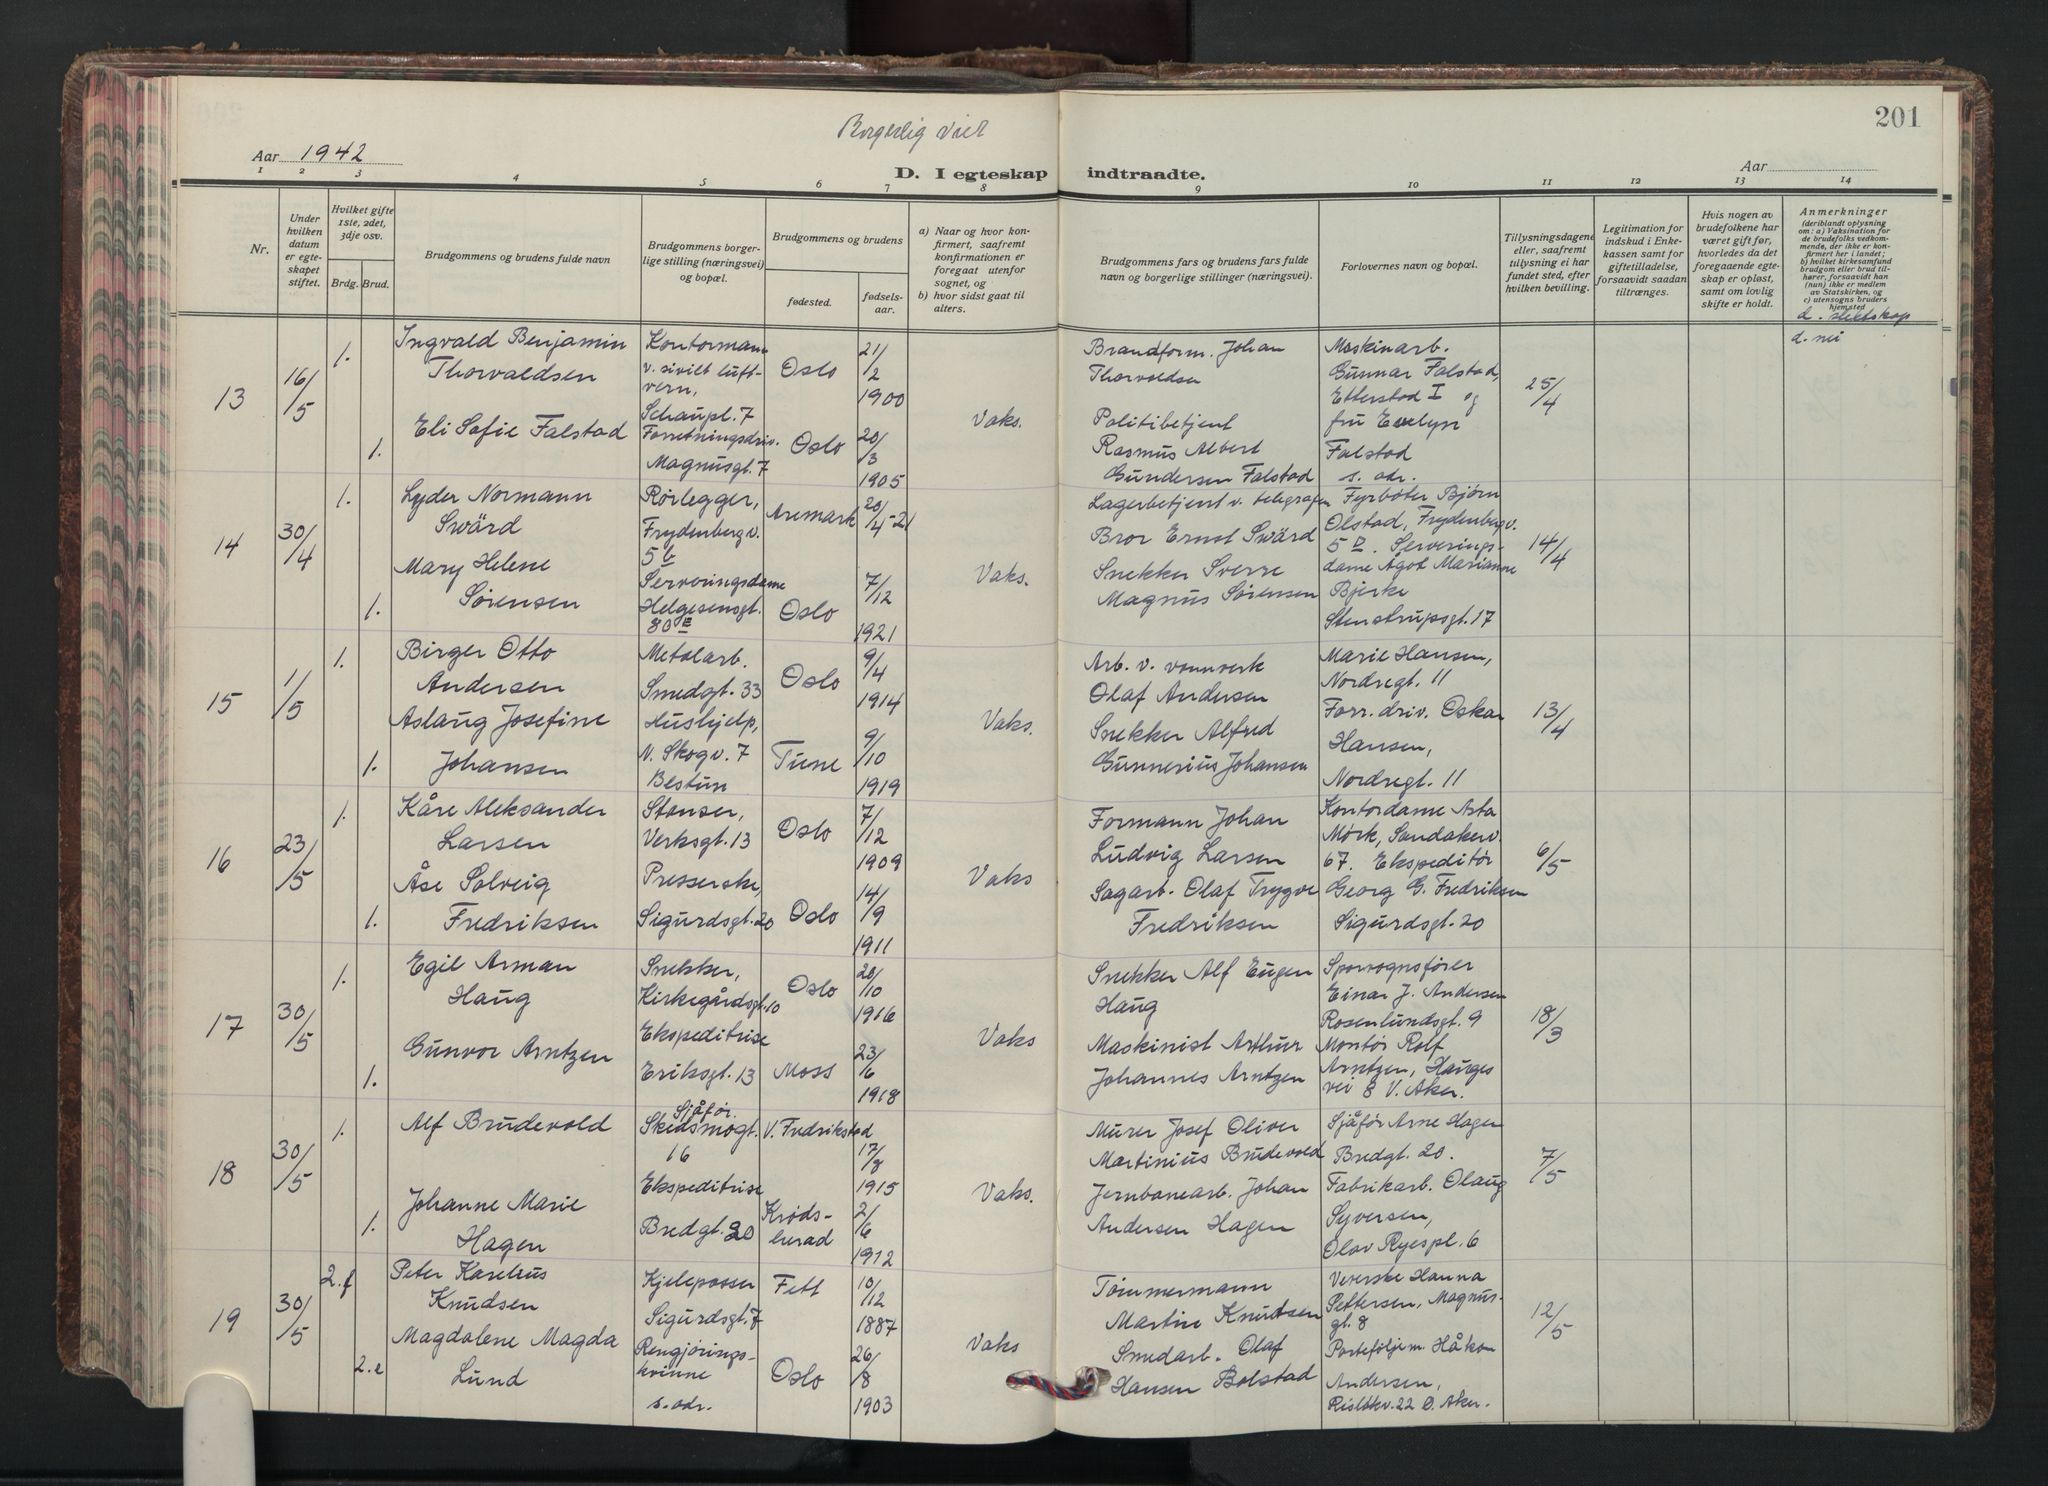 Borgerlig viet
201
Aar 1942
D. I egteskap indtraadte.
Aar
1 2 3 4 5 6 7 8 9 10 11 12 13 14
Nr.
Under hvilken datum er egteskapet stiftet.
Hvilket gifte 1ste, 2det, 3dje osv.
Brdg. Brud.
Brudgommens og brudens fulde navn
Brudgommens borgerlige stilling (næringsvei) og bopæl.
Brudgommens og brudens
fødested.
fødselsaar.
a) Naar og hvor konfirmert, saafremt konfirmationen er foregaat utenfor sognet, og
b) hvor sidst gaat til alters.
Brudgommens fars og brudens fars fulde navn og borgerlige stillinger (næringsvei).
Forlovernes navn og bopæl.
Tillysningsdagene eller, saafremt tillysning ei har fundet sted, efter hvilken bevilling.
Legitimation for indskud i Enkekassen samt for giftetilladelse, forsaavidt saadan tiltrænges.
Hvis nogen av brudefolkene har været gift før, hvorledes da det foregaaende egteskap er opløst, samt om lovlig skifte er holdt.
Anmerkninger
(deriblandt oplysning om: a) Vaksination for de brudefolks vedkommende, der ikke er konfirmert her i landet; b) hvilket kirkesamfund brudgom eller brud tilhører, forsaavidt han (hun) ikke er medlem av Statskirken, og c) utensogns bruders hjemsted
d. slektskap
d. nei
13
16/5
1.
Ingvald Benjamin
Thorvaldsen
Kontormann
v. sivilt luft-
vern,
Schaupl. 7
Oslo
21/2
1900
1.
Eli Sofie Falstad
Forretningsdriv.
Magnusgt. 7
Oslo
20/3
1905
Vaks.
Brandform. Johan
Thorvoldsen
Politibetjent
Rasmus Albert
Gundersen Falstad
Maskinarb.
Gunnar Falstad,
Etterstad I og
fru Evelyn
Falstad
s. adr.
25/4
14
30/4
1.
Lyder Normann
Swärd
Rørlegger,
Frydenbergv.
5 b
Aremark
20/4-21
1.
Mary Helene
Sørensen
Serveringsdame
Helgesensgt.
80 E
Oslo
7/12
1921
Vaks.
Lagerbetjent v. telegrafen
Bror Ernst Swärd
Snekker Sverre
Magnus Sørensen
Fyrbøter Bjørn
Olstad, Frydenbergv.
5 D. Serverings-
dame Ågot Marianne
Bjerke
Stenstrupsgt. 17
14/4
15
1/5
1.
Birger Otto
Andersen
Metalarb.
Smedgt. 33
Oslo
9/4
1914
1.
Aslaug Josefine
Johansen
Hushjelp,
N. Skogv. 7
Bestun
Tune
9/10
1919
Vaks.
Arb. v. vannverk
Olaf Andersen
Snekker Alfred
Gunnerius Johansen
Marie Hansen,
Nordregt. 11
Forr. driv. Oskar
Hansen,
Nordregt. 11
13/4
16
23/5
1.
Kåre Aleksander
Larsen
Stanser,
Verksgt. 13
Oslo
7/12
1909
1.
Åse Solveig
Fredriksen
Presserske,
Sigurdsgt. 20
Oslo
14/9
1911
Vaks
Formann Johan
Ludvig Larsen
Sagarb. Olaf Trygve
Fredriksen
Kontordame Asta
Mørk, Sandakerv.
67. Ekspeditør
Georg G. Fredriksen
Sigurdsgt. 20
6/5
17
30/5
1.
Egil Arman
Haug
Snekker,
Kirkegårdsgt. 10
Oslo
20/10
1916
1.
Gunvor Arntzen
Ekspeditrise
Eriksgt. 13
Moss
23/6
1918
Vaks
Snekker Alf Eugen
Haug
Maskinist Arthur
Johannes Arntzen
Sporvognsfører
Einar J. Andersen
Rosenlundsgt. 9
Montør Rolf
Arntzen, Hauges
vei 8 V. Aker.
18/3
18
30/5
1.
Alf Brudevold
Sjåfør.
Skedsmogt.
16
V. Fredrikstad
17/8
1915
1.
Johanne Marie
Hagen
Ekspeditrise
Bredgt. 20
Krøds-
herad
2/6
1912
Vaks.
Murer Josef Oliver
Martinius Brudevold
Jernbanearb. Johan
Andersen Hagen
Sjåfør Arne Hagen
Bredgt. 20.
Fabrikarb. Olaug
Syversen,
Olav Ryespl. 6
7/5
19
30/5
2. f
Peter Karelius
Knudsen
Kjelepasser
Sigurdsgt. 7
Fett
10/12
1887
2. e
Magdalene Magda
Lund
Rengjørings-
kvinne
s. adr.
Oslo
26/8
1903
Vaks
Tømmermann
Martin Knudsen
Smedarb. Olaf
Hansen Bolstad
Veverske Hanna
Pettersen, Magnus-
gt. 8
Porteføljem. Håkon
Andersen,
22 Ø. Aker.
12/5